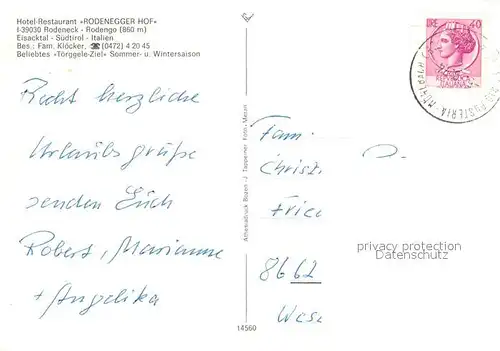 Hotel-Restaurant »RODENEGGER HOF«
I-39030 Rodeneck - Rodengo (860 m)
Eisacktal - Südtirol - Italien
Bes.: Fam. Klöcker, ☎ (0472) 4 20 45
Beliebtes »Törggele-Ziel« Sommer- u. Wintersaison
Recht herzliche
Urlaubsgrüße
senden Euch
Robert, Marianne
+ Angelika
14560
Athesiadruck Bozen - J. Tappeiner Foto-Meran
40
Fam.
Christ
Frica
8662
Wese
privacy protection